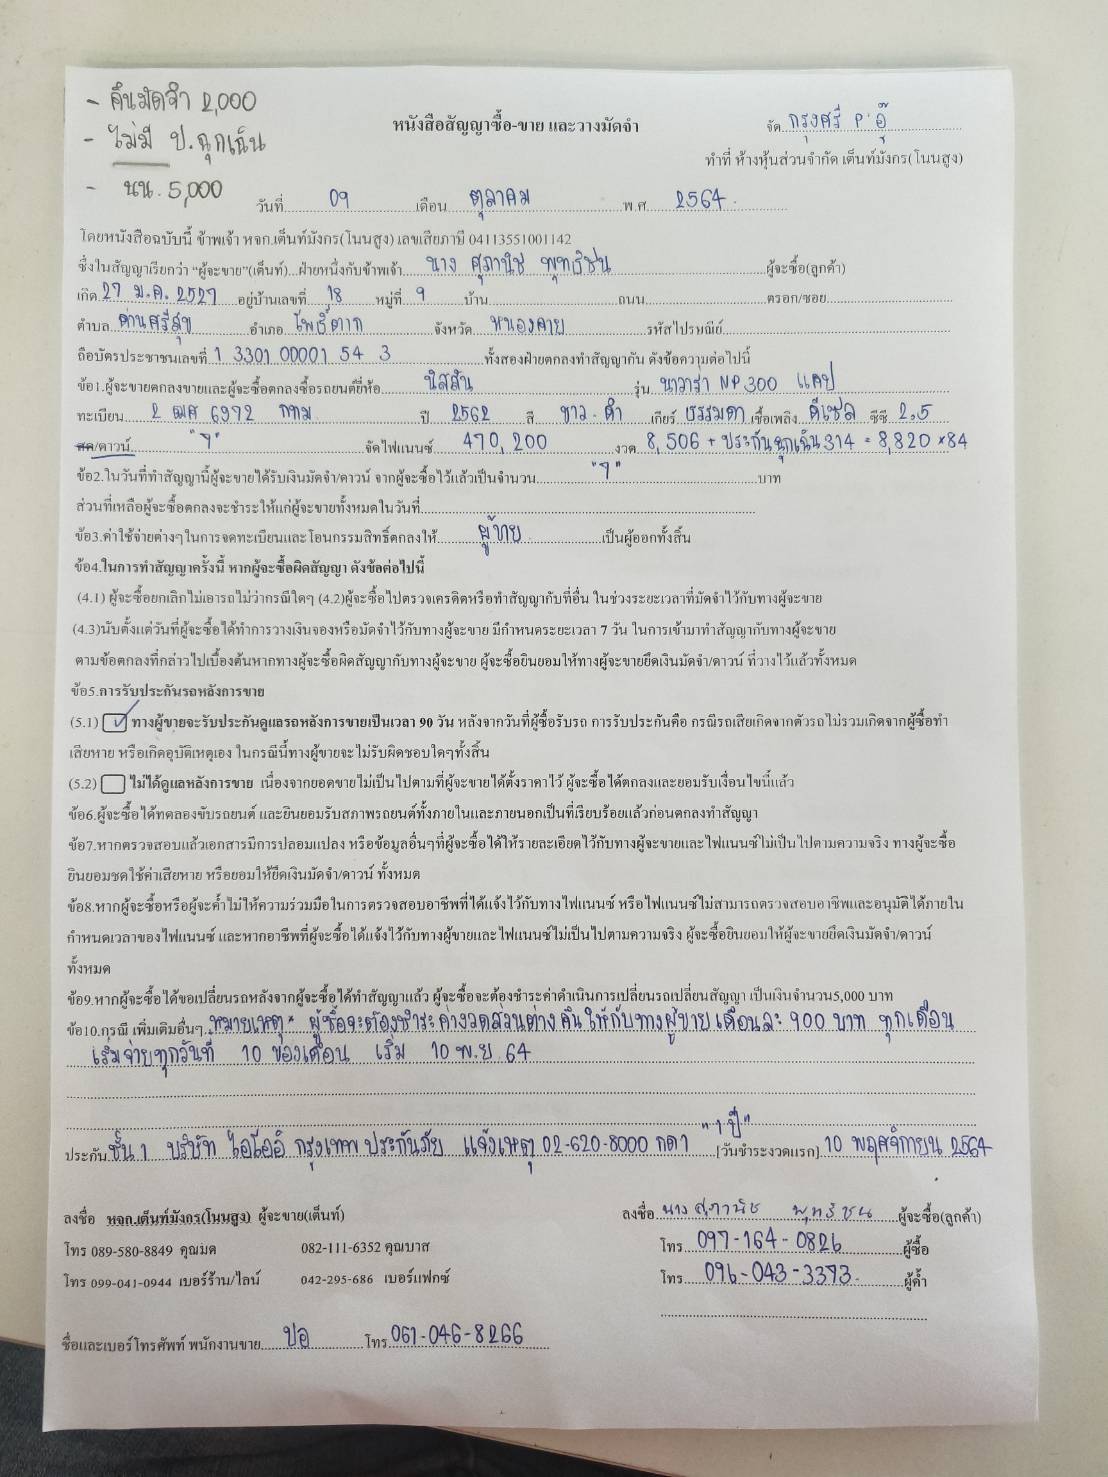 - คืนมัดจำ 2,000
- ไม่มี ป.ฉุกเฉิน
- นน. 5,000
หนังสือสัญญาซื้อ-ขาย และวางมัดจำ
จัด กรุงศรี P'อู๊
ทำที่ ห้างหุ้นส่วนจำกัด เต็นท์มังกร(โนนสูง)
วันที่ 09 เดือน ตุลาคม พ.ศ. 2564
โดยหนังสือฉบับนี้ ข้าพเจ้า หจก.เต็นท์มังกร(โนนสูง) เลขเสียภาษี 04113551001142
ซึ่งในสัญญาเรียกว่า "ผู้จะขาย"(เต็นท์)...ฝ่ายหนึ่งกับข้าพเจ้า นาง สุภานิช พุทธิชน ผู้จะซื้อ(ลูกค้า)
เกิด 27 ม.ค. 2527 อยู่บ้านเลขที่ 18 หมู่ที่ 9 บ้าน ถนน ตรอก/ซอย
ตำบล ด่านศรีสุข อำเภอ โพธิ์ตาก จังหวัด หนองคาย รหัสไปรษณีย์
ถือบัตรประชาชนเลขที่ 1 3301 00001 54 3 ทั้งสองฝ่ายตกลงทำสัญญากัน ดังข้อความต่อไปนี้
ข้อ1.ผู้จะขายตกลงขายและผู้จะซื้อตกลงซื้อรถยนต์ยี่ห้อ นิสสัน รุ่น นาวาร่า NP 300 แคป
ทะเบียน 2 ฒศ 6972 กทม ปี 2562 สี ขาว-ดำ เกียร์ ธรรมดา เชื้อเพลิง ดีเซล ซีซี 2.5
สด/ดาวน์ "7" จัดไฟแนนซ์ 470,200 งวด 8,506 + ประกันฉุกเฉิน 314 = 8,820 × 84
ข้อ2.ในวันที่ทำสัญญานี้ผู้จะขายได้รับเงินมัดจำ/ดาวน์ จากผู้จะซื้อไว้แล้วเป็นจำนวน "7" บาท
ส่วนที่เหลือผู้จะซื้อตกลงจะชำระให้แก่ผู้จะขายทั้งหมดในวันที่
ข้อ3.ค่าใช้จ่ายต่างๆในการจดทะเบียนและโอนกรรมสิทธิ์ตกลงให้ ผู้ขาย เป็นผู้ออกทั้งสิ้น
ข้อ4.ในการทำสัญญาครั้งนี้ หากผู้จะซื้อผิดสัญญา ดังข้อต่อไปนี้
(4.1) ผู้จะซื้อยกเลิกไม่เอารถไม่ว่ากรณีใดๆ (4.2)ผู้จะซื้อไปตรวจเครดิตหรือทำสัญญากับที่อื่น ในช่วงระยะเวลาที่มัดจำไว้กับทางผู้จะขาย
(4.3)นับตั้งแต่วันที่ผู้จะซื้อได้ทำการวางเงินจองหรือมัดจำไว้กับทางผู้จะขาย มีกำหนดระยะเวลา 7 วัน ในการเข้ามาทำสัญญากับทางผู้จะขาย
ตามข้อตกลงที่กล่าวไปเบื้องต้นหากทางผู้จะซื้อผิดสัญญากับทางผู้จะขาย ผู้จะซื้อยินยอมให้ทางผู้จะขายยึดเงินมัดจำ/ดาวน์ ที่วางไว้แล้วทั้งหมด
ข้อ5.การรับประกันรถหลังการขาย
(5.1) ✓ ทางผู้ขายจะรับประกันดูแลรถหลังการขายเป็นเวลา 90 วัน หลังจากวันที่ผู้ซื้อรับรถ การรับประกันคือ กรณีรถเสียเกิดจากตัวรถไม่รวมเกิดจากผู้ซื้อทำ
เสียหาย หรือเกิดอุบัติเหตุเอง ในกรณีนี้ทางผู้ขายจะไม่รับผิดชอบใดๆทั้งสิ้น
(5.2) ไม่ได้ดูแลหลังการขาย เนื่องจากยอดขายไม่เป็นไปตามที่ผู้จะขายได้ตั้งราคาไว้ ผู้จะซื้อได้ตกลงและยอมรับเงื่อนไขนี้แล้ว
ข้อ6.ผู้จะซื้อได้ทดลองขับรถยนต์ และยินยอมรับสภาพรถยนต์ทั้งภายในและภายนอกเป็นที่เรียบร้อยแล้วก่อนตกลงทำสัญญา
ข้อ7.หากตรวจสอบแล้วเอกสารมีการปลอมแปลง หรือข้อมูลอื่นๆที่ผู้จะซื้อได้ให้รายละเอียดไว้กับทางผู้จะขายและไฟแนนซ์ไม่เป็นไปตามความจริง ทางผู้จะซื้อ
ยินยอมชดใช้ค่าเสียหาย หรือยอมให้ยึดเงินมัดจำ/ดาวน์ ทั้งหมด
ข้อ8.หากผู้จะซื้อหรือผู้จะค้ำไม่ให้ความร่วมมือในการตรวจสอบอาชีพที่ได้แจ้งไว้กับทางไฟแนนซ์ หรือไฟแนนซ์ไม่สามารถตรวจสอบอาชีพและอนุมัติได้ภายใน
กำหนดเวลาของไฟแนนซ์ และหากอาชีพที่ผู้จะซื้อได้แจ้งไว้กับทางผู้ขายและไฟแนนซ์ไม่เป็นไปตามความจริง ผู้จะซื้อยินยอมให้ผู้จะขายยึดเงินมัดจำ/ดาวน์
ทั้งหมด
ข้อ9.หากผู้จะซื้อได้ขอเปลี่ยนรถหลังจากผู้จะซื้อได้ทำสัญญาแล้ว ผู้จะซื้อจะต้องชำระค่าดำเนินการเปลี่ยนรถเปลี่ยนสัญญา เป็นเงินจำนวน5,000 บาท
ข้อ10.กรณี เพิ่มเติมอื่นๆ *หมายเหตุ* ผู้ซื้อจะต้องชำระค่างวดส่วนต่าง คืนให้กับทางผู้ขายเดือนละ 900 บาท ทุกเดือน
เริ่มจ่ายทุกวันที่ 10 ของเดือน เริ่ม 10 พ.ย. 64
"1 ปี"
ประกัน ชั้น 1 บริษัท ไอโออิ กรุงเทพ ประกันภัย แจ้งเหตุ 02-620-8000 กด 1 [วันชำระงวดแรก] 10 พฤศจิกายน 2564
ลงชื่อ หจก.เต็นท์มังกร(โนนสูง) ผู้จะขาย(เต็นท์) ลงชื่อ นาง สุภานิช พุทธิชน ผู้จะซื้อ(ลูกค้า)
โทร 089-580-8849 คุณมด 082-111-6352 คุณบาส โทร 097-164-0826 ผู้ซื้อ
โทร 099-041-0944 เบอร์ร้าน/ไลน์ 042-295-686 เบอร์แฟกซ์ โทร 096-043-3373 ผู้ค้ำ
ชื่อและเบอร์โทรศัพท์ พนักงานขาย ปอ โทร 061-046-8266